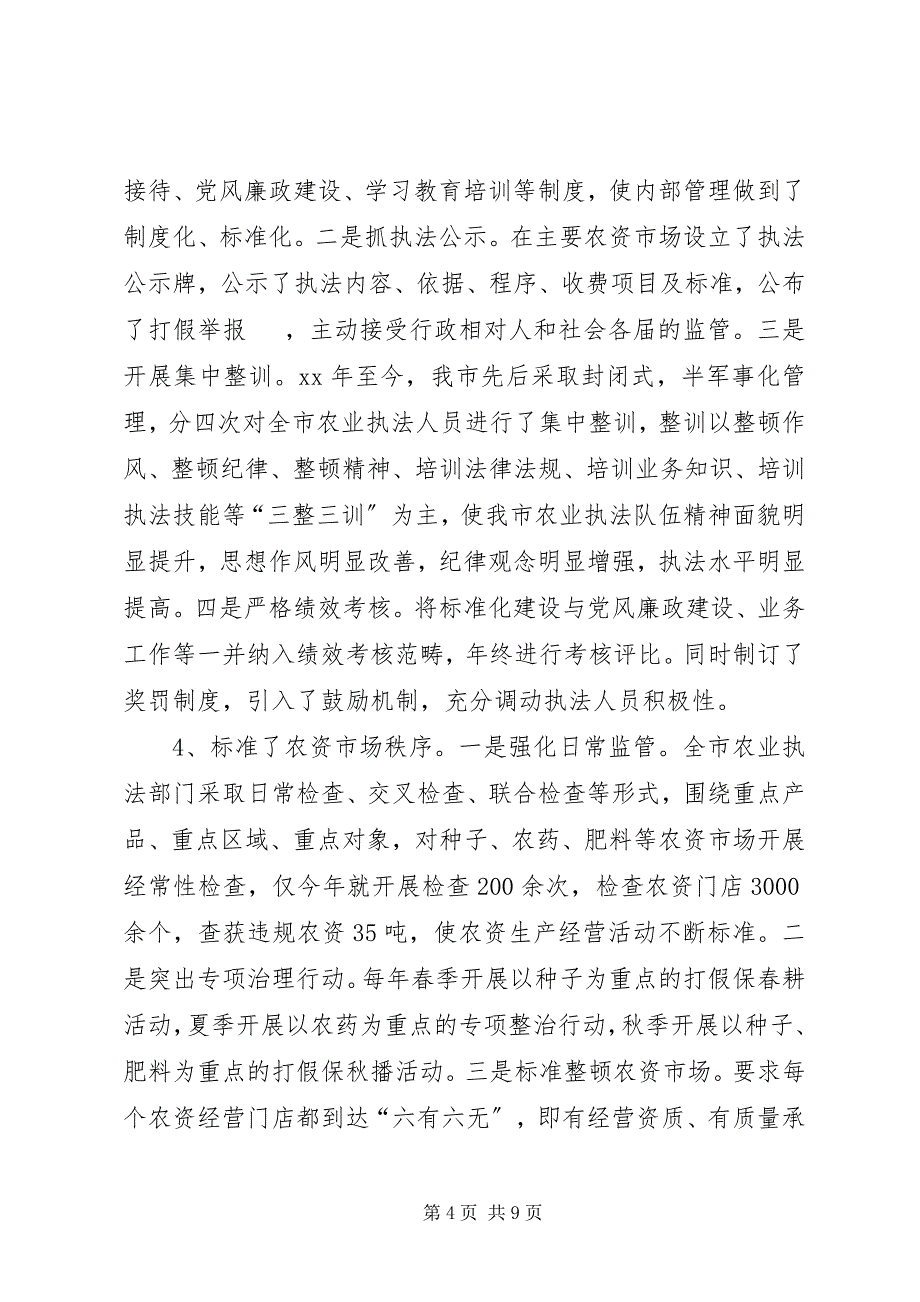 接待、党风廉政建设、学习教育培训等制度，使内部管理做到了
制度化、标准化。二是抓执法公示。在主要农资市场设立了执法
公示牌，公示了执法内容、依据、程序、收费项目及标准，公布
了打假举报　 ，主动接受行政相对人和社会各届的监管。三是
开展集中整训。xx 年至今，我市先后采取封闭式，半军事化管
理，分四次对全市农业执法人员进行了集中整训，整训以整顿作
风、整顿纪律、整顿精神、培训法律法规、培训业务知识、培训
执法技能等“三整三训〞为主，使我市农业执法队伍精神面貌明
显提升，思想作风明显改善，纪律观念明显增强，执法水平明显
提高。四是严格绩效考核。将标准化建设与党风廉政建设、业务
工作等一并纳入绩效考核范畴，年终进行考核评比。同时制订了
奖罚制度，引入了鼓励机制，充分调动执法人员积极性。
4、标准了农资市场秩序。一是强化日常监管。全市农业执
法部门采取日常检查、交叉检查、联合检查等形式，围绕重点产
品、重点区域、重点对象，对种子、农药、肥料等农资市场开展
经常性检查，仅今年就开展检查 200 余次，检查农资门店 3000
余个，查获违规农资 35 吨，使农资生产经营活动不断标准。二
是突出专项治理行动。每年春季开展以种子为重点的打假保春耕
活动，夏季开展以农药为重点的专项整治行动，秋季开展以种子、
肥料为重点的打假保秋播活动。三是标准整顿农资市场。要求每
个农资经营门店都到达“六有六无〞，即有经营资质、有质量承
第 4 页 共 9 页